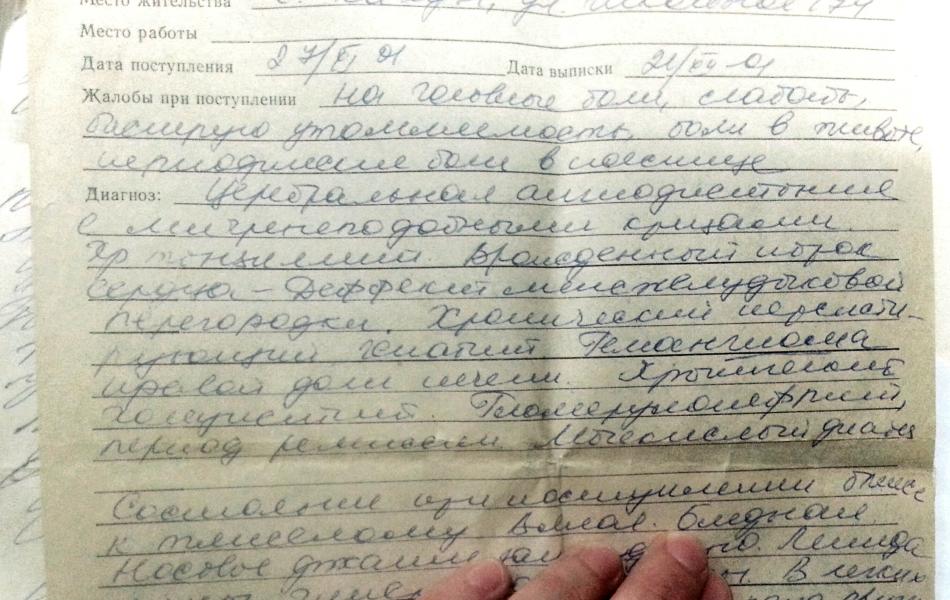 Место жительства с.
Место работы
Дата поступления 27/XI 01 Дата выписки 21/XII-01
Жалобы при поступлении на головные боли, слабость,
быструю утомляемость, боли в животе,
периодические боли в пояснице
Диагноз: Церебральная ангиодистония
с мигренеподобными кризами.
Хр тонзиллит. Врожденный порок
сердца - Деффект межжелудочковой
перегородки. Хронический персисти-
рующий гепатит Гемангиома
правой доли печени. Хронический
холецистит. Гломерулонефрит,
период ремиссии. Мочекислый диатез
Состояние при поступлении ближе
к тяжелому Вялая. Бледная.
Носовое дыхание
В легких